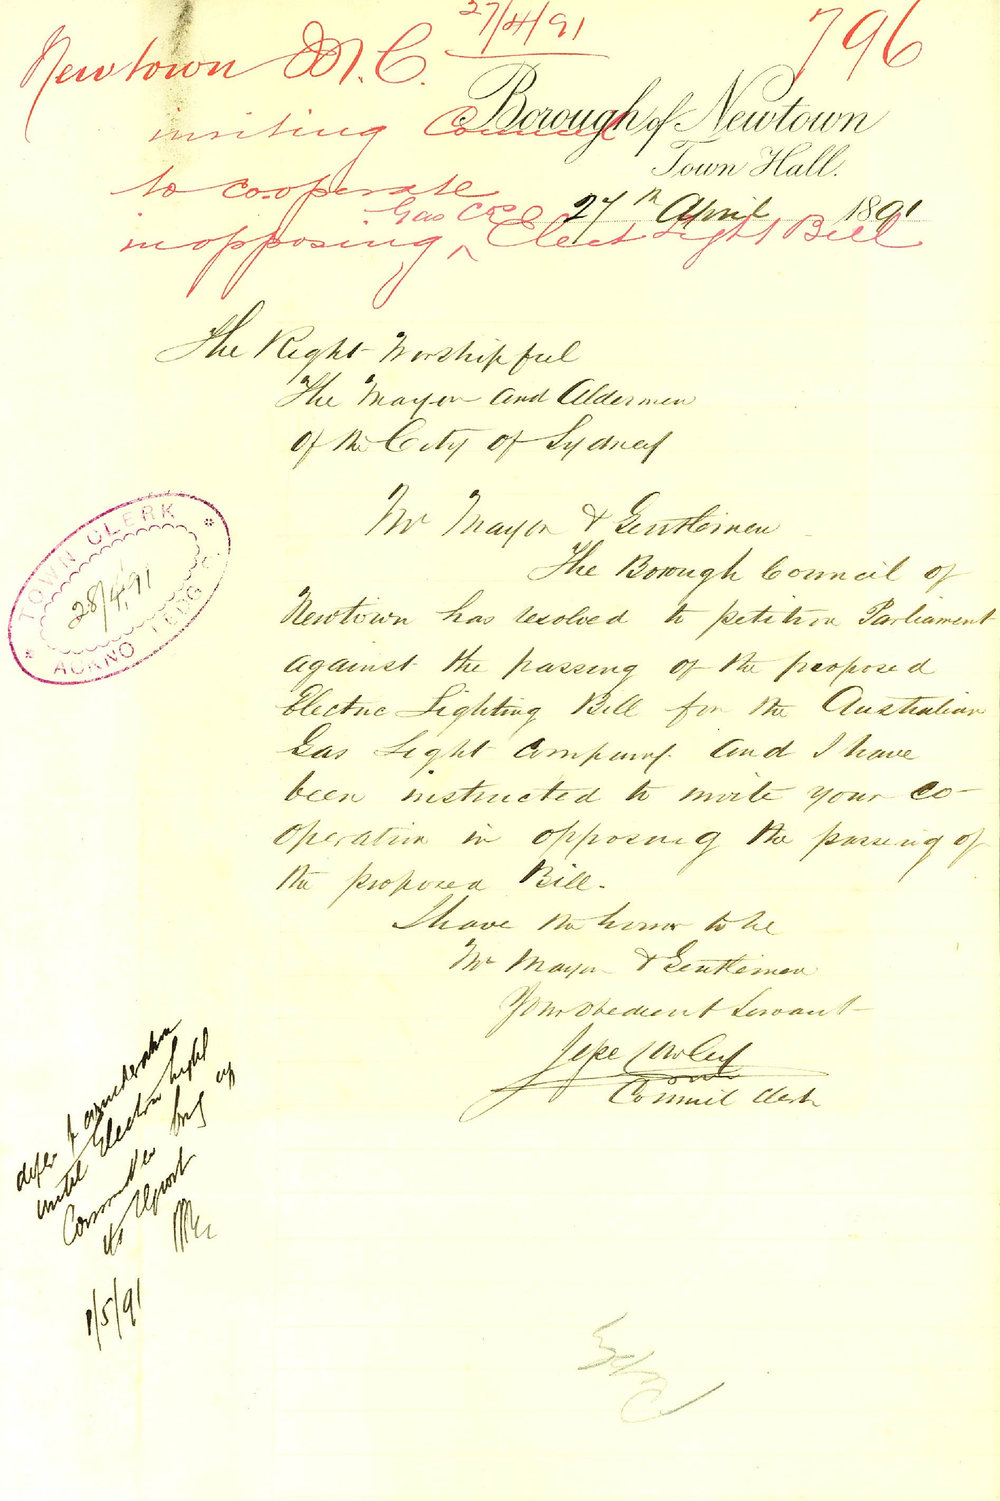 27/4/91
796
Newtown M. C.
inviting Council
to cooperate
in opposing Gas Co's Elect Light Bill
Borough of Newtown
Town Hall.
27th April 1891
The Right Worshipful
The Mayor and Aldermen
of the City of Sydney
Mr Mayor & Gentlemen
The Borough Council of
Newtown has resolved to petition Parliament
against the passing of the proposed
Electric Lighting Bill for the Australian
Gas Light Company. and I have
been instructed to invite your co-
operation in opposing the passing of
the proposed Bill.
I have the honor to be
Mr Mayor & Gentlemen
Your obedient Servant
Council Clerk
TOWN CLERK
28/4/91
ACKNOWLEDG
defer consideration
until Electric Light
Committee bring up
its Report
1/5/91